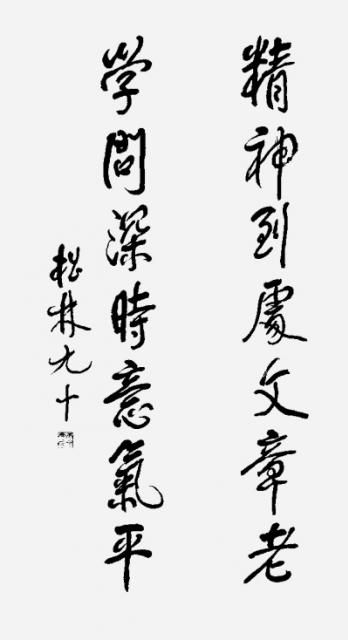 精神到處文章老
学問深時意氣平
松林九十